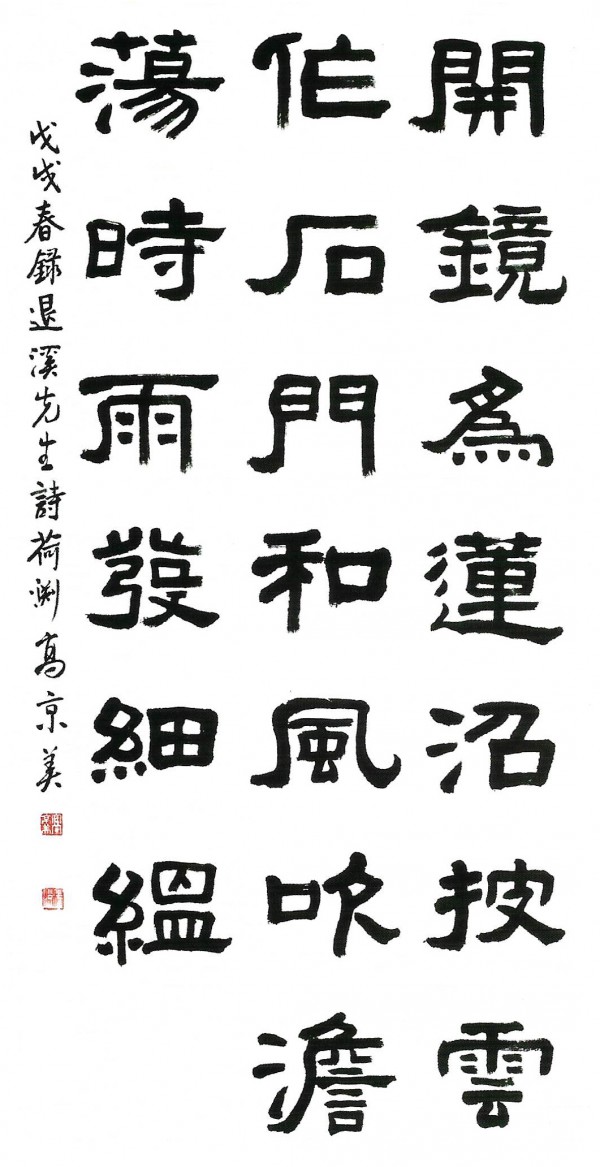 開鏡為蓮沼披雲
作石門和風吹澹
蕩時雨發細縕
戊戌春錄退溪先生詩荷渕高京美